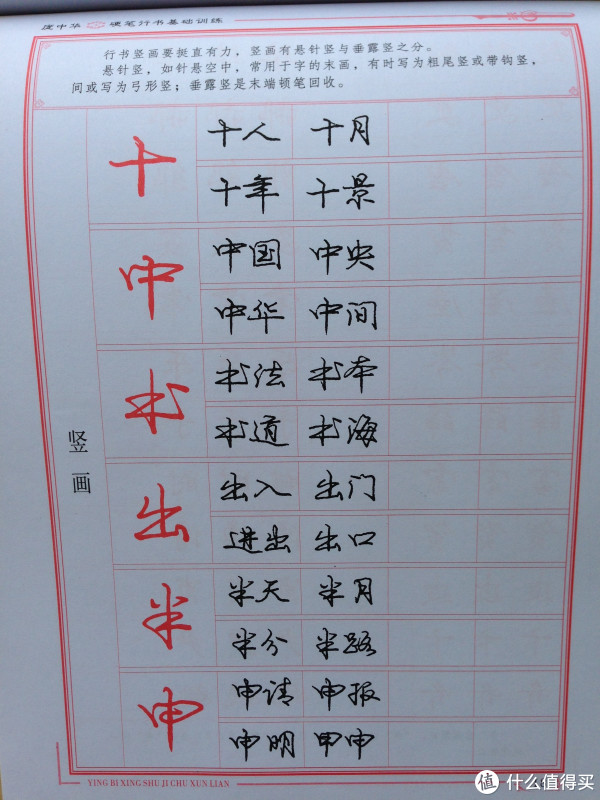 庞中华 硬笔行书基础训练
行书竖画要挺直有力，竖画有悬针竖与垂露竖之分。
悬针竖，如针悬空中，常用于字的末画，有时写为粗尾竖或带钩竖，
间或写为弓形竖；垂露竖是末端顿笔回收。
竖画
十
十人 十月
十年 十景
中
中国 中央
中华 中间
书
书法 书本
书道 书海
出
出入 出门
进出 出口
半
半天 半月
半分 半路
申
申请 申报
申明 甲申
YING BI XING SHU JI CHU XUN LIAN
值 什么值得买